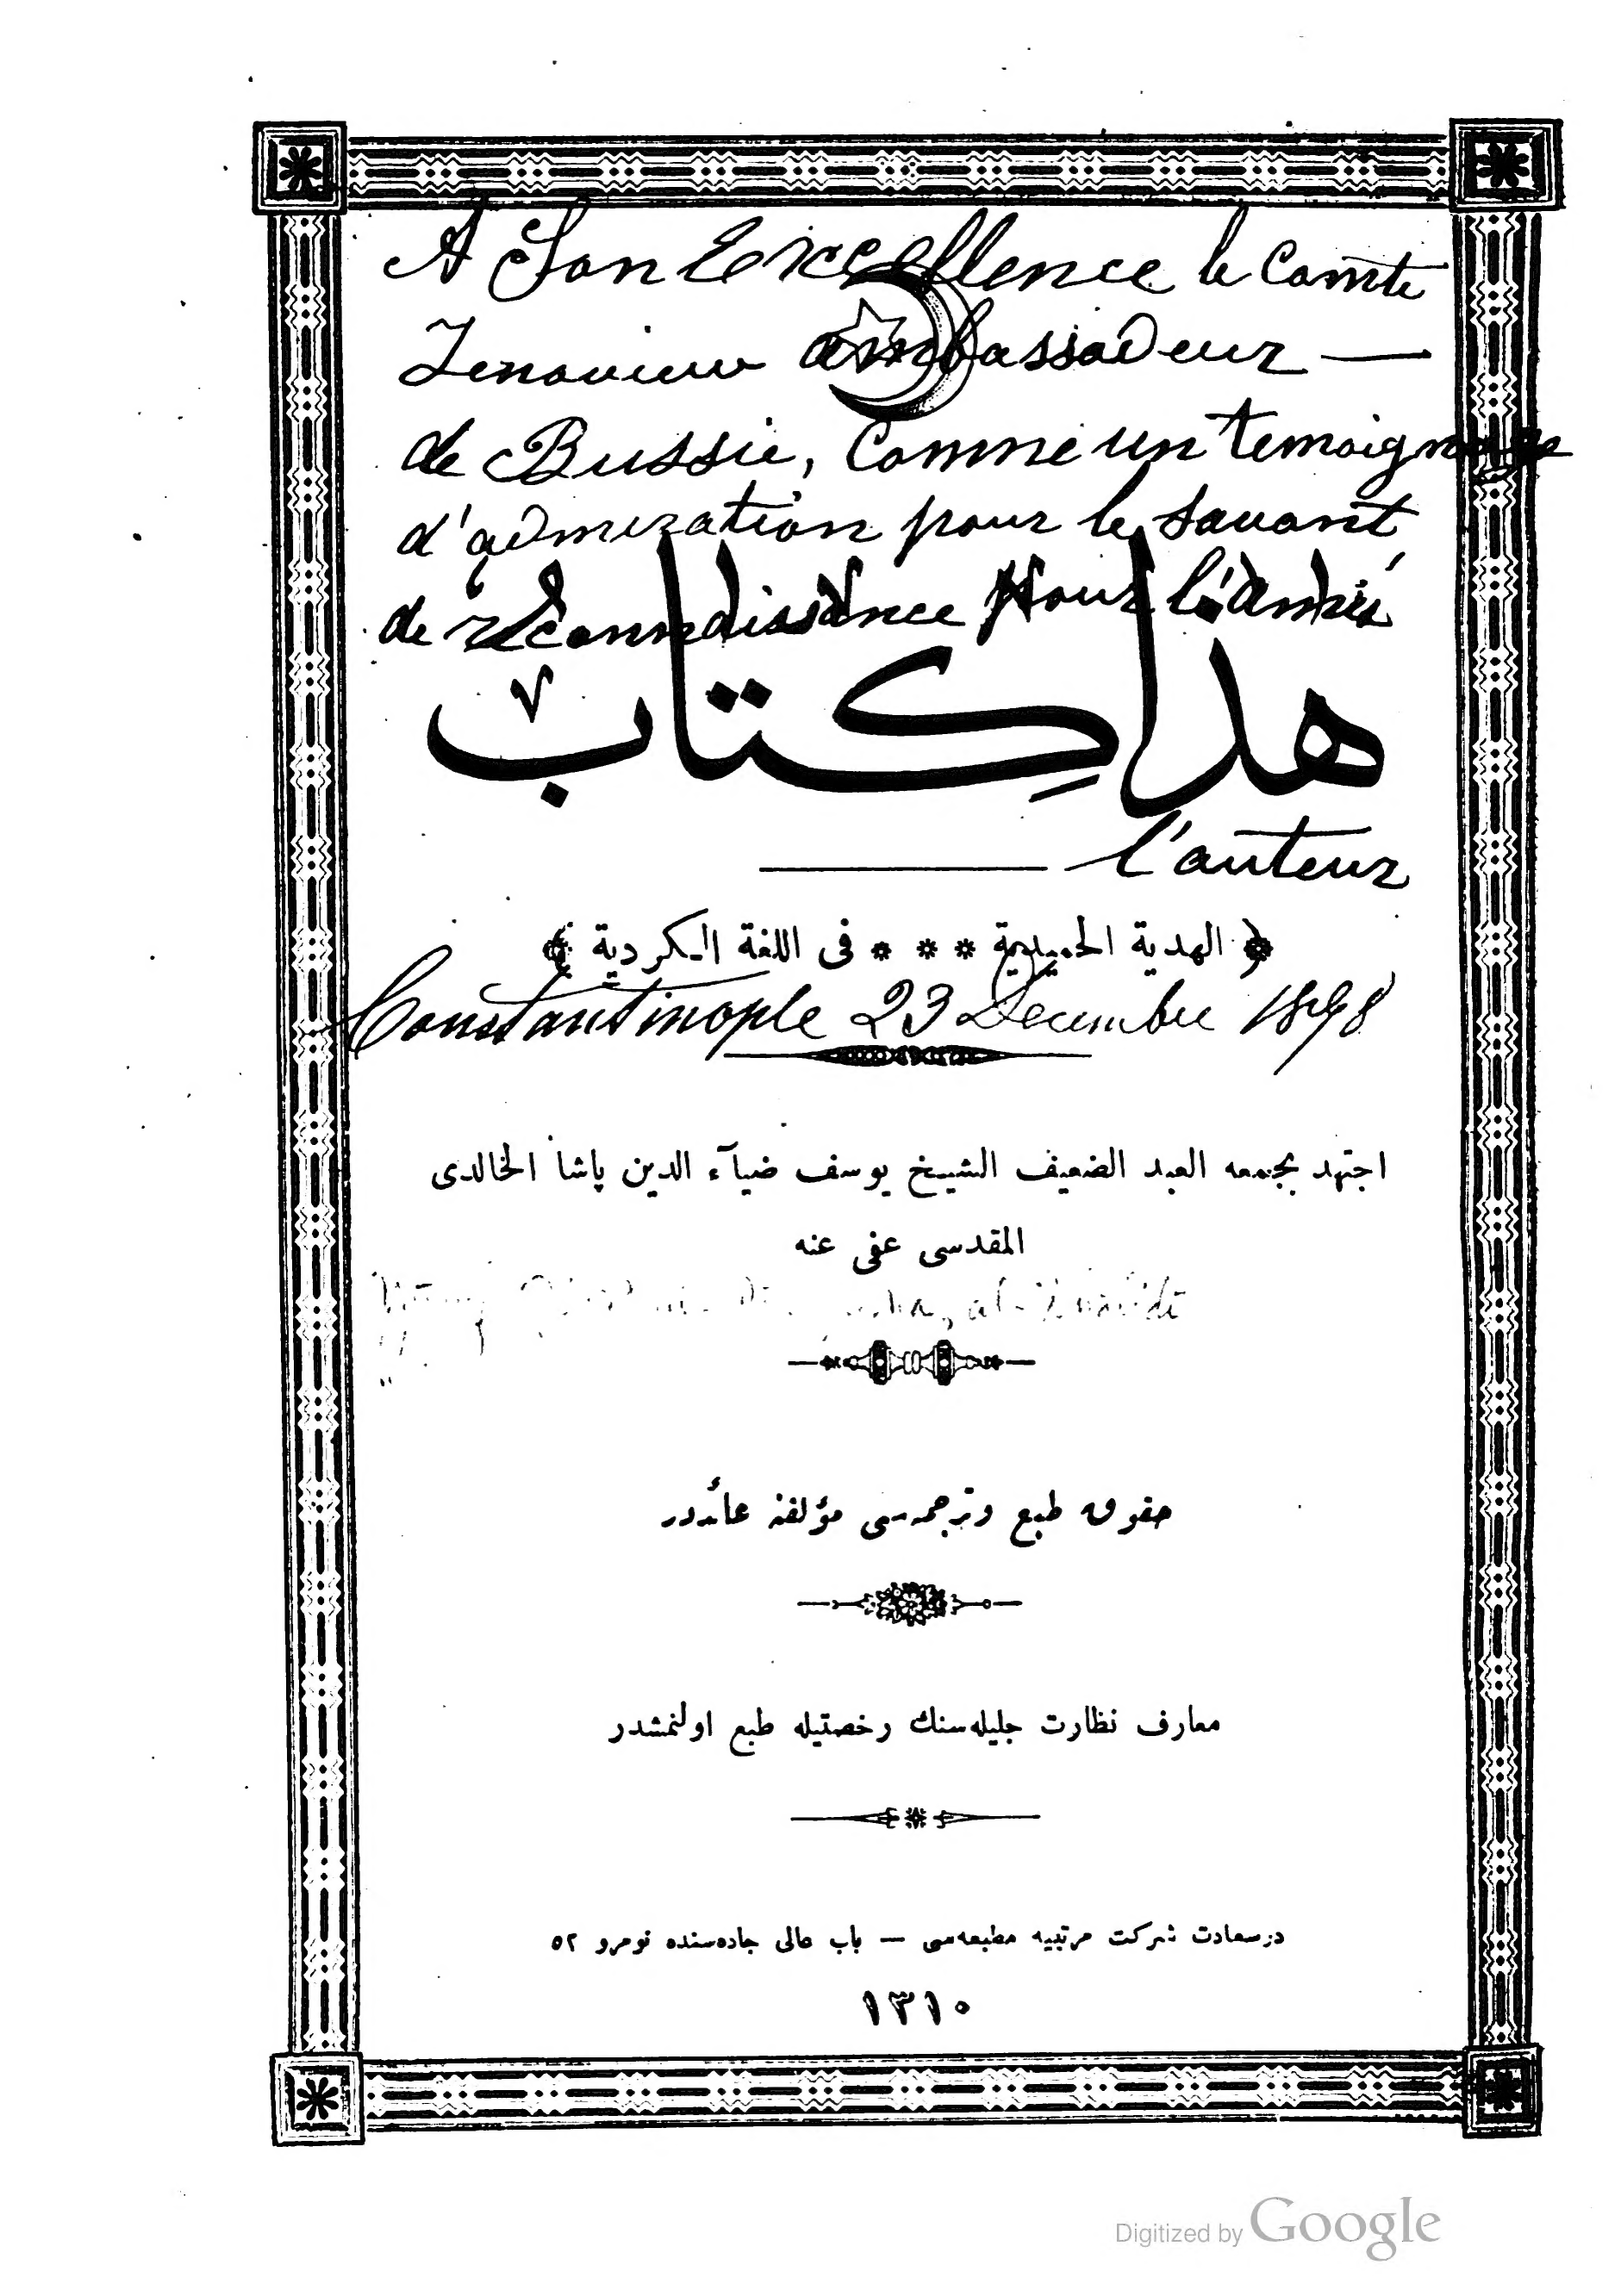 A Son Excellence le Comte
ambassadeur —
de Bussie, Comme un temoignage
d'admiration pour le savant
de reconnaissance pour l'ami
هذا كتاب
l'auteur
﴿ الهدية الحميدية * * * فى اللغة الكردية ﴾
Constantinople 23 Decembre 1898
اجتهد بجمعه العبد الضعيف الشيخ يوسف ضيآء الدين پاشا الخالدى
المقدسى عفى عنه
al-Khalidi
حقوق طبع وترجمه‌سى مؤلفنه عائددر
معارف نظارت جليله‌سنك رخصتيله طبع اولنمشدر
درسعادت شركت مرتبيه مطبعه‌سى — باب عالى جاده‌سنده نومرو ٥٢
١٣١٠
Digitized by Google